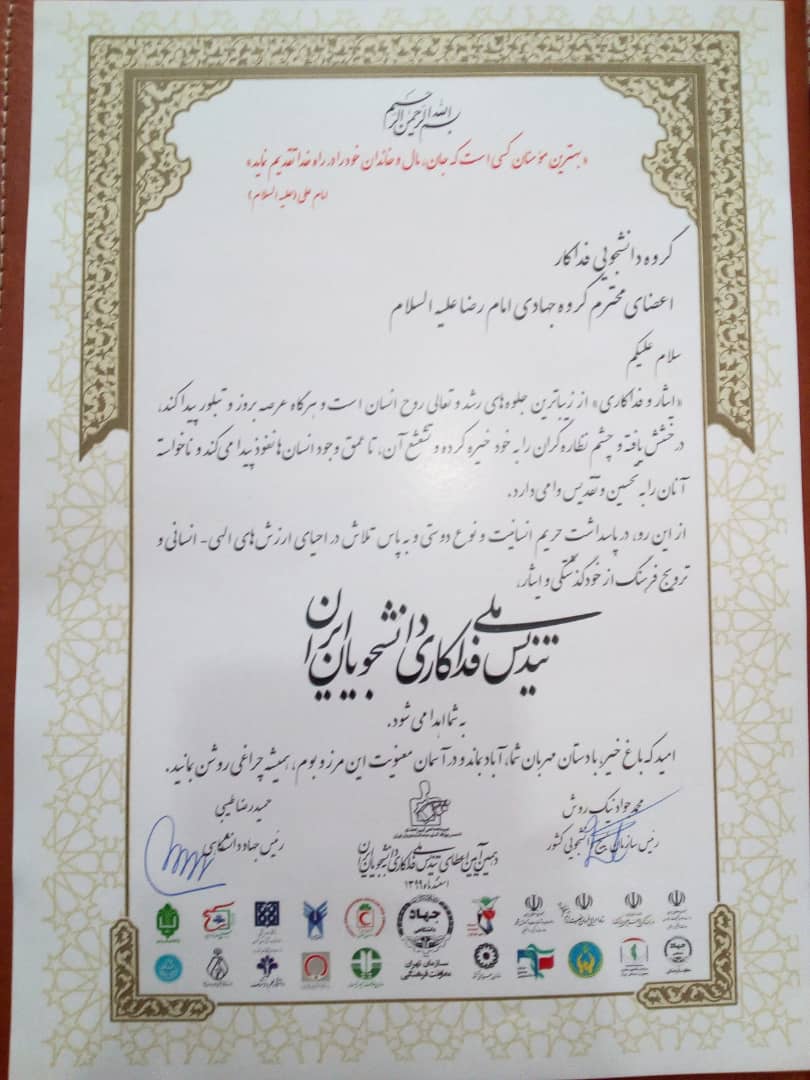 بسم الله الرحمن الرحیم
«بهترین مؤمنان کسی است که جان، مال و خاندان خود را در راه خدا تقدیم نماید»
امام علی (علیه السلام)
گروه دانشجویی فداکار
اعضای محترم گروه جهادی امام رضا علیه السلام
سلام علیکم
«ایثار و فداکاری» از زیباترین جلوه‌های رشد و تعالی روح انسان است و هرگاه عرصه بروز و تبلور پیدا کند،
درخشش یافته و چشم نظاره‌گران را به خود خیره کرده و تشعشع آن، تا عمق وجود انسان‌ها نفوذ پیدا می‌کند و ناخواسته
آنان را به تحسین و تقدیس وامی دارد.
از این رو، در پاسداشت حریم انسانیت و نوع دوستی و به پاس تلاش در احیای ارزش‌های الهی- انسانی و
ترویج فرهنگ از خودگذشتگی و ایثار،
تندیس ملی فداکاری دانشجویان ایران
به شما اهدا می شود.
امید که باغ خیر، با دستان مهربان شما، آباد بماند و در آسمان معنویت این مرز و بوم، همیشه چراغی روشن بمانید.
محمدجواد نیک روش
رئیس سازمان بسیج دانشجویی کشور
حمیدرضا طیبی
رئیس جهاد دانشگاهی
دهمین آیین اعطای تندیس ملی فداکاری دانشجویان ایران
اسفندماه ۱۳۹۹
جهاد
دانشگاهی
سازمان تهران
معاونت فرهنگی